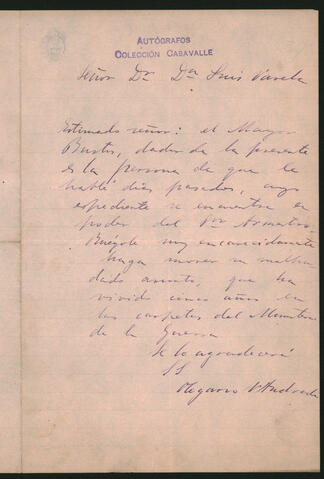 AUTÓGRAFOS
COLECCIÓN CASAVALLE
Señor Dr. Dn Luis Varela
Estimado señor: el Mayor
Bustos, dador de la presente
es la persona de que le
hablé dias pasados, cuyo
espediente se encuentra en
poder del Dor
Ruégole muy encarecidamente
haga mover su malha-
dado asunto, que ha
vivido cinco años en
las carpetas del Ministerio
de la Guerra
Se lo agradecerá
SS
Olegario V. Andrade